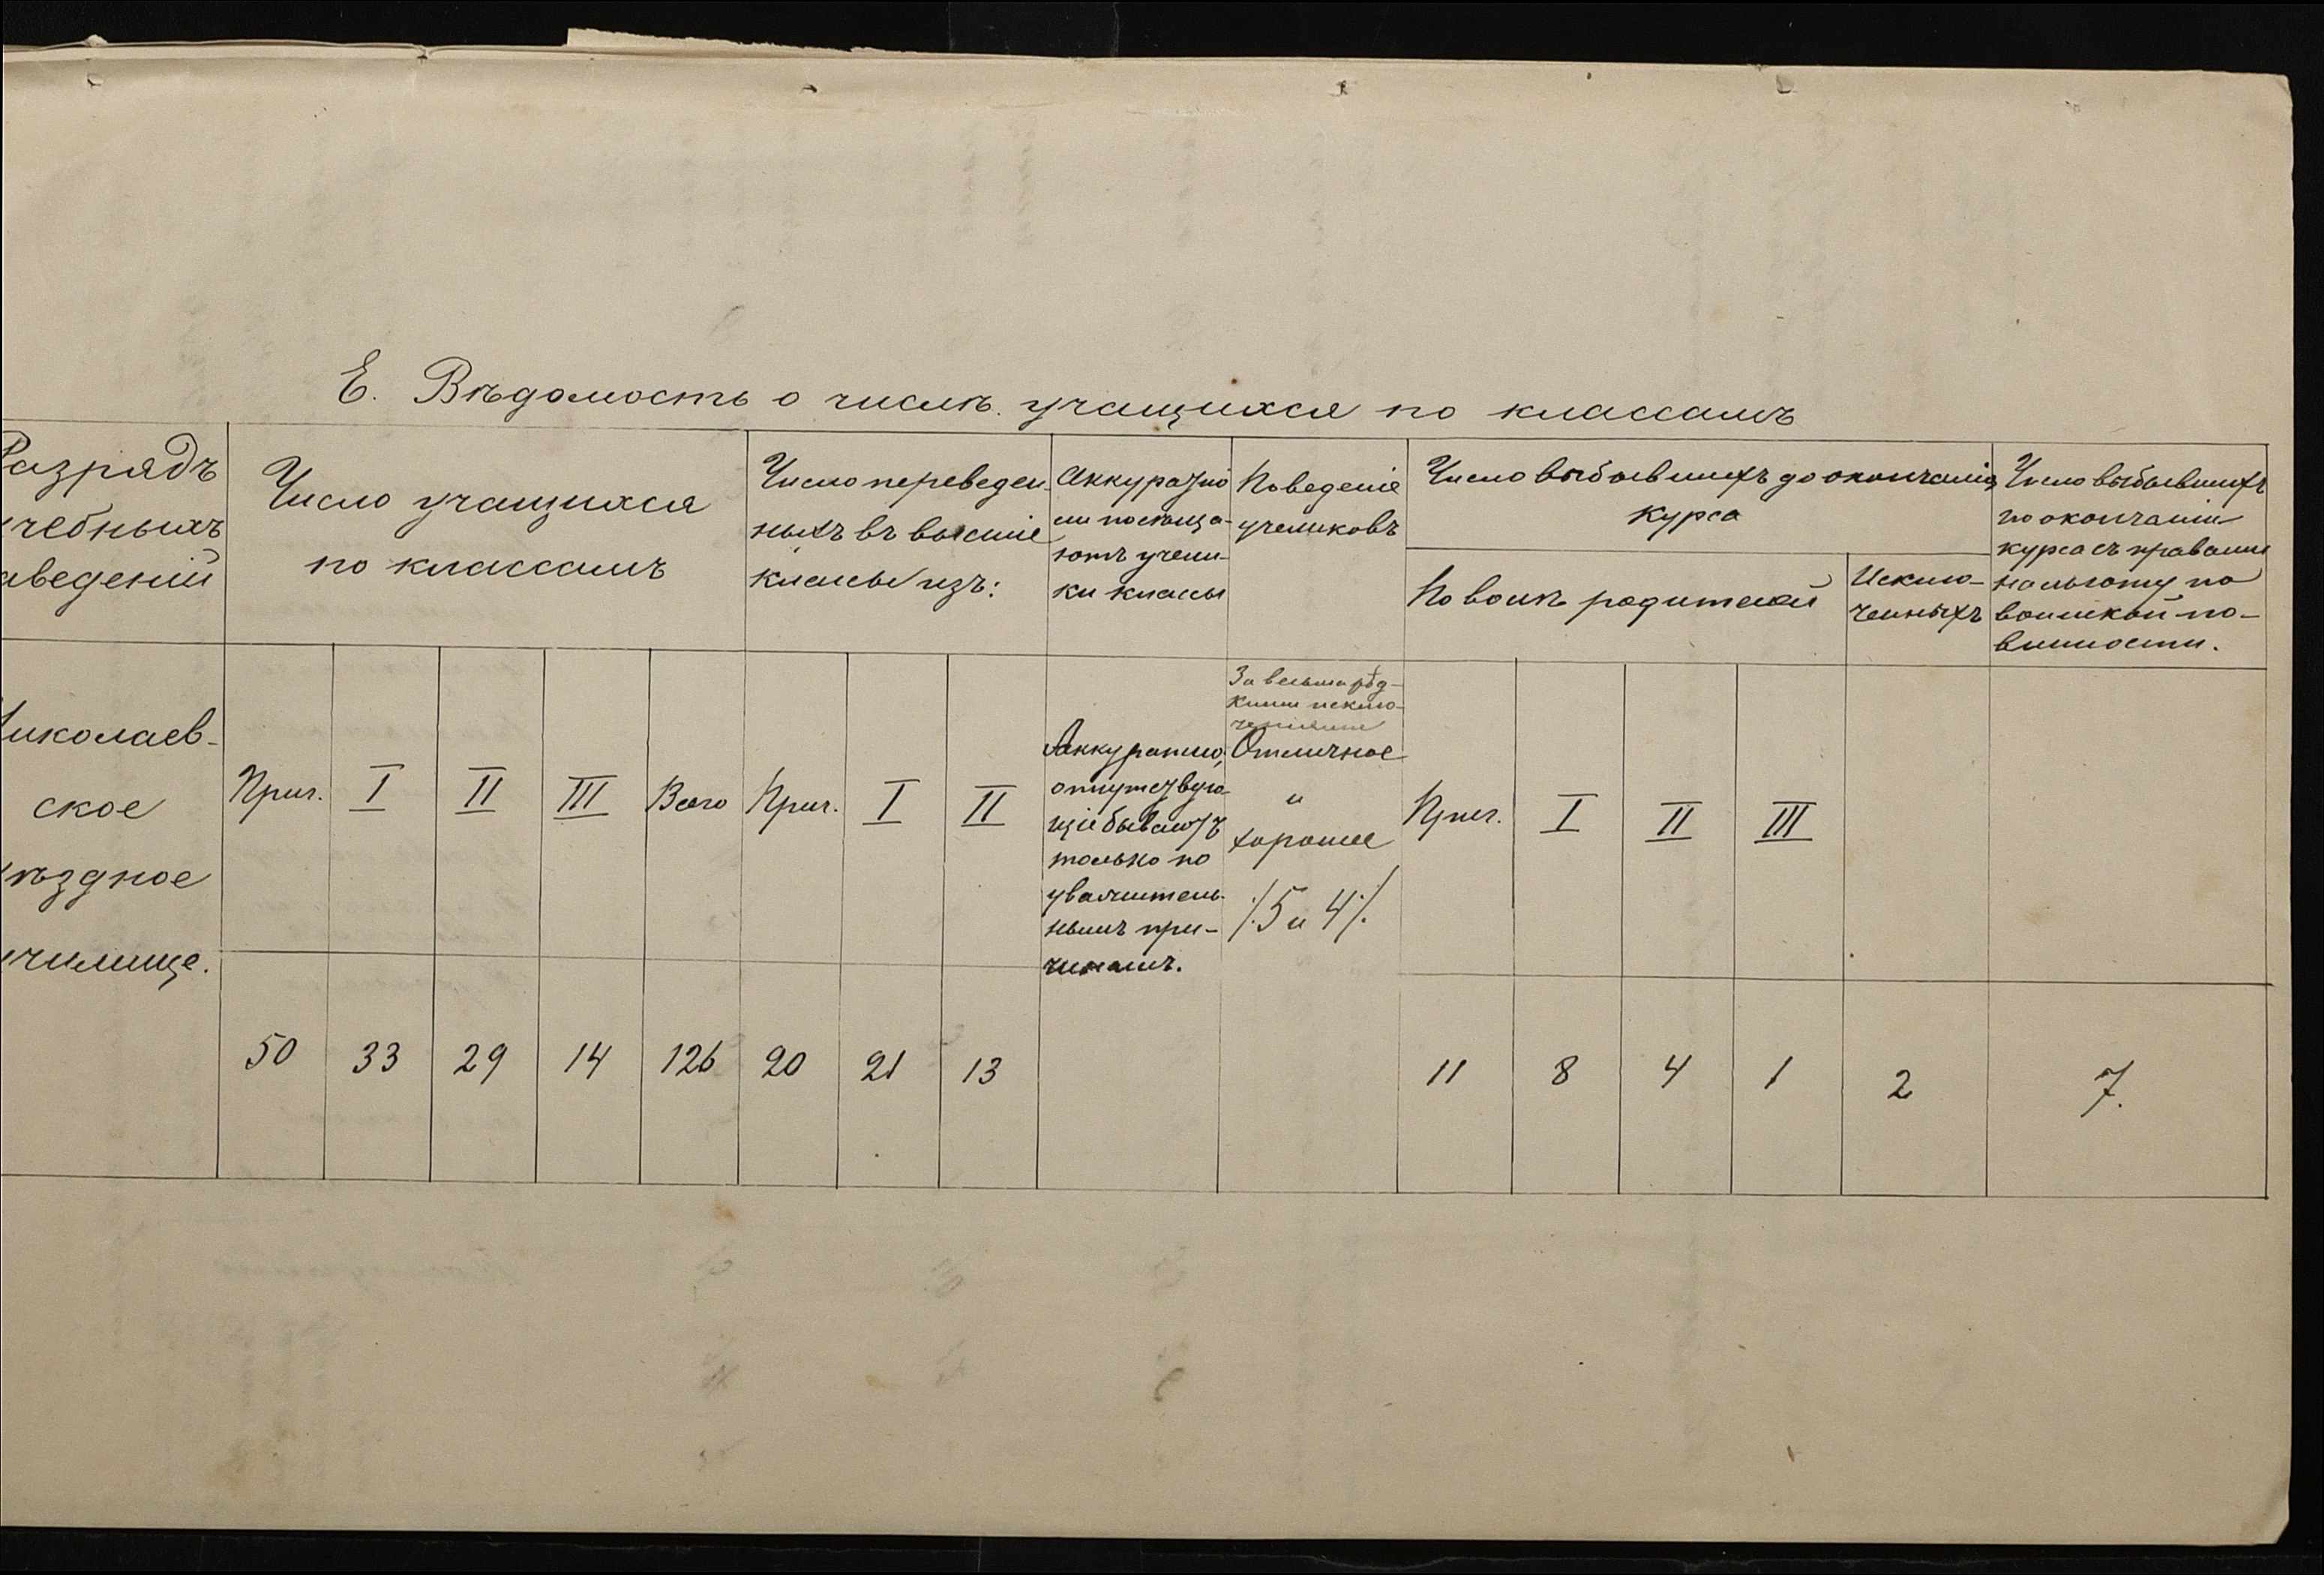 Е. Вѣдомость о числѣ учащихся по классамъ
Разрядъ
учебныхъ
заведеній
Число учащихся
по классамъ
Число переведен-
ныхъ въ высшіе
классы изъ:
Аккуратно
ли посѣща-
ютъ учени-
ки классы
Поведеніе
учениковъ
Число выбывшихъ до окончанія
курса
По волѣ родителей
Исклю-
ченныхъ
Число выбывшихъ
по окончаніи
курса съ правами
на льготу по
воинской по-
винности.
Николаев-
ское
уѣздное
училище.
Приг.
I
II
III
Всего
Приг.
I
II
Аккуратно,
отсутствую-
щіе бываютъ
только по
уважитель-
нымъ при-
чинамъ.
За весьма рѣд-
кими исклю-
ченіями
Отличное
и
хорошее
/:5 и 4:/
Приг.
I
II
III
50
33
29
14
126
20
21
13
11
8
4
1
2
7.